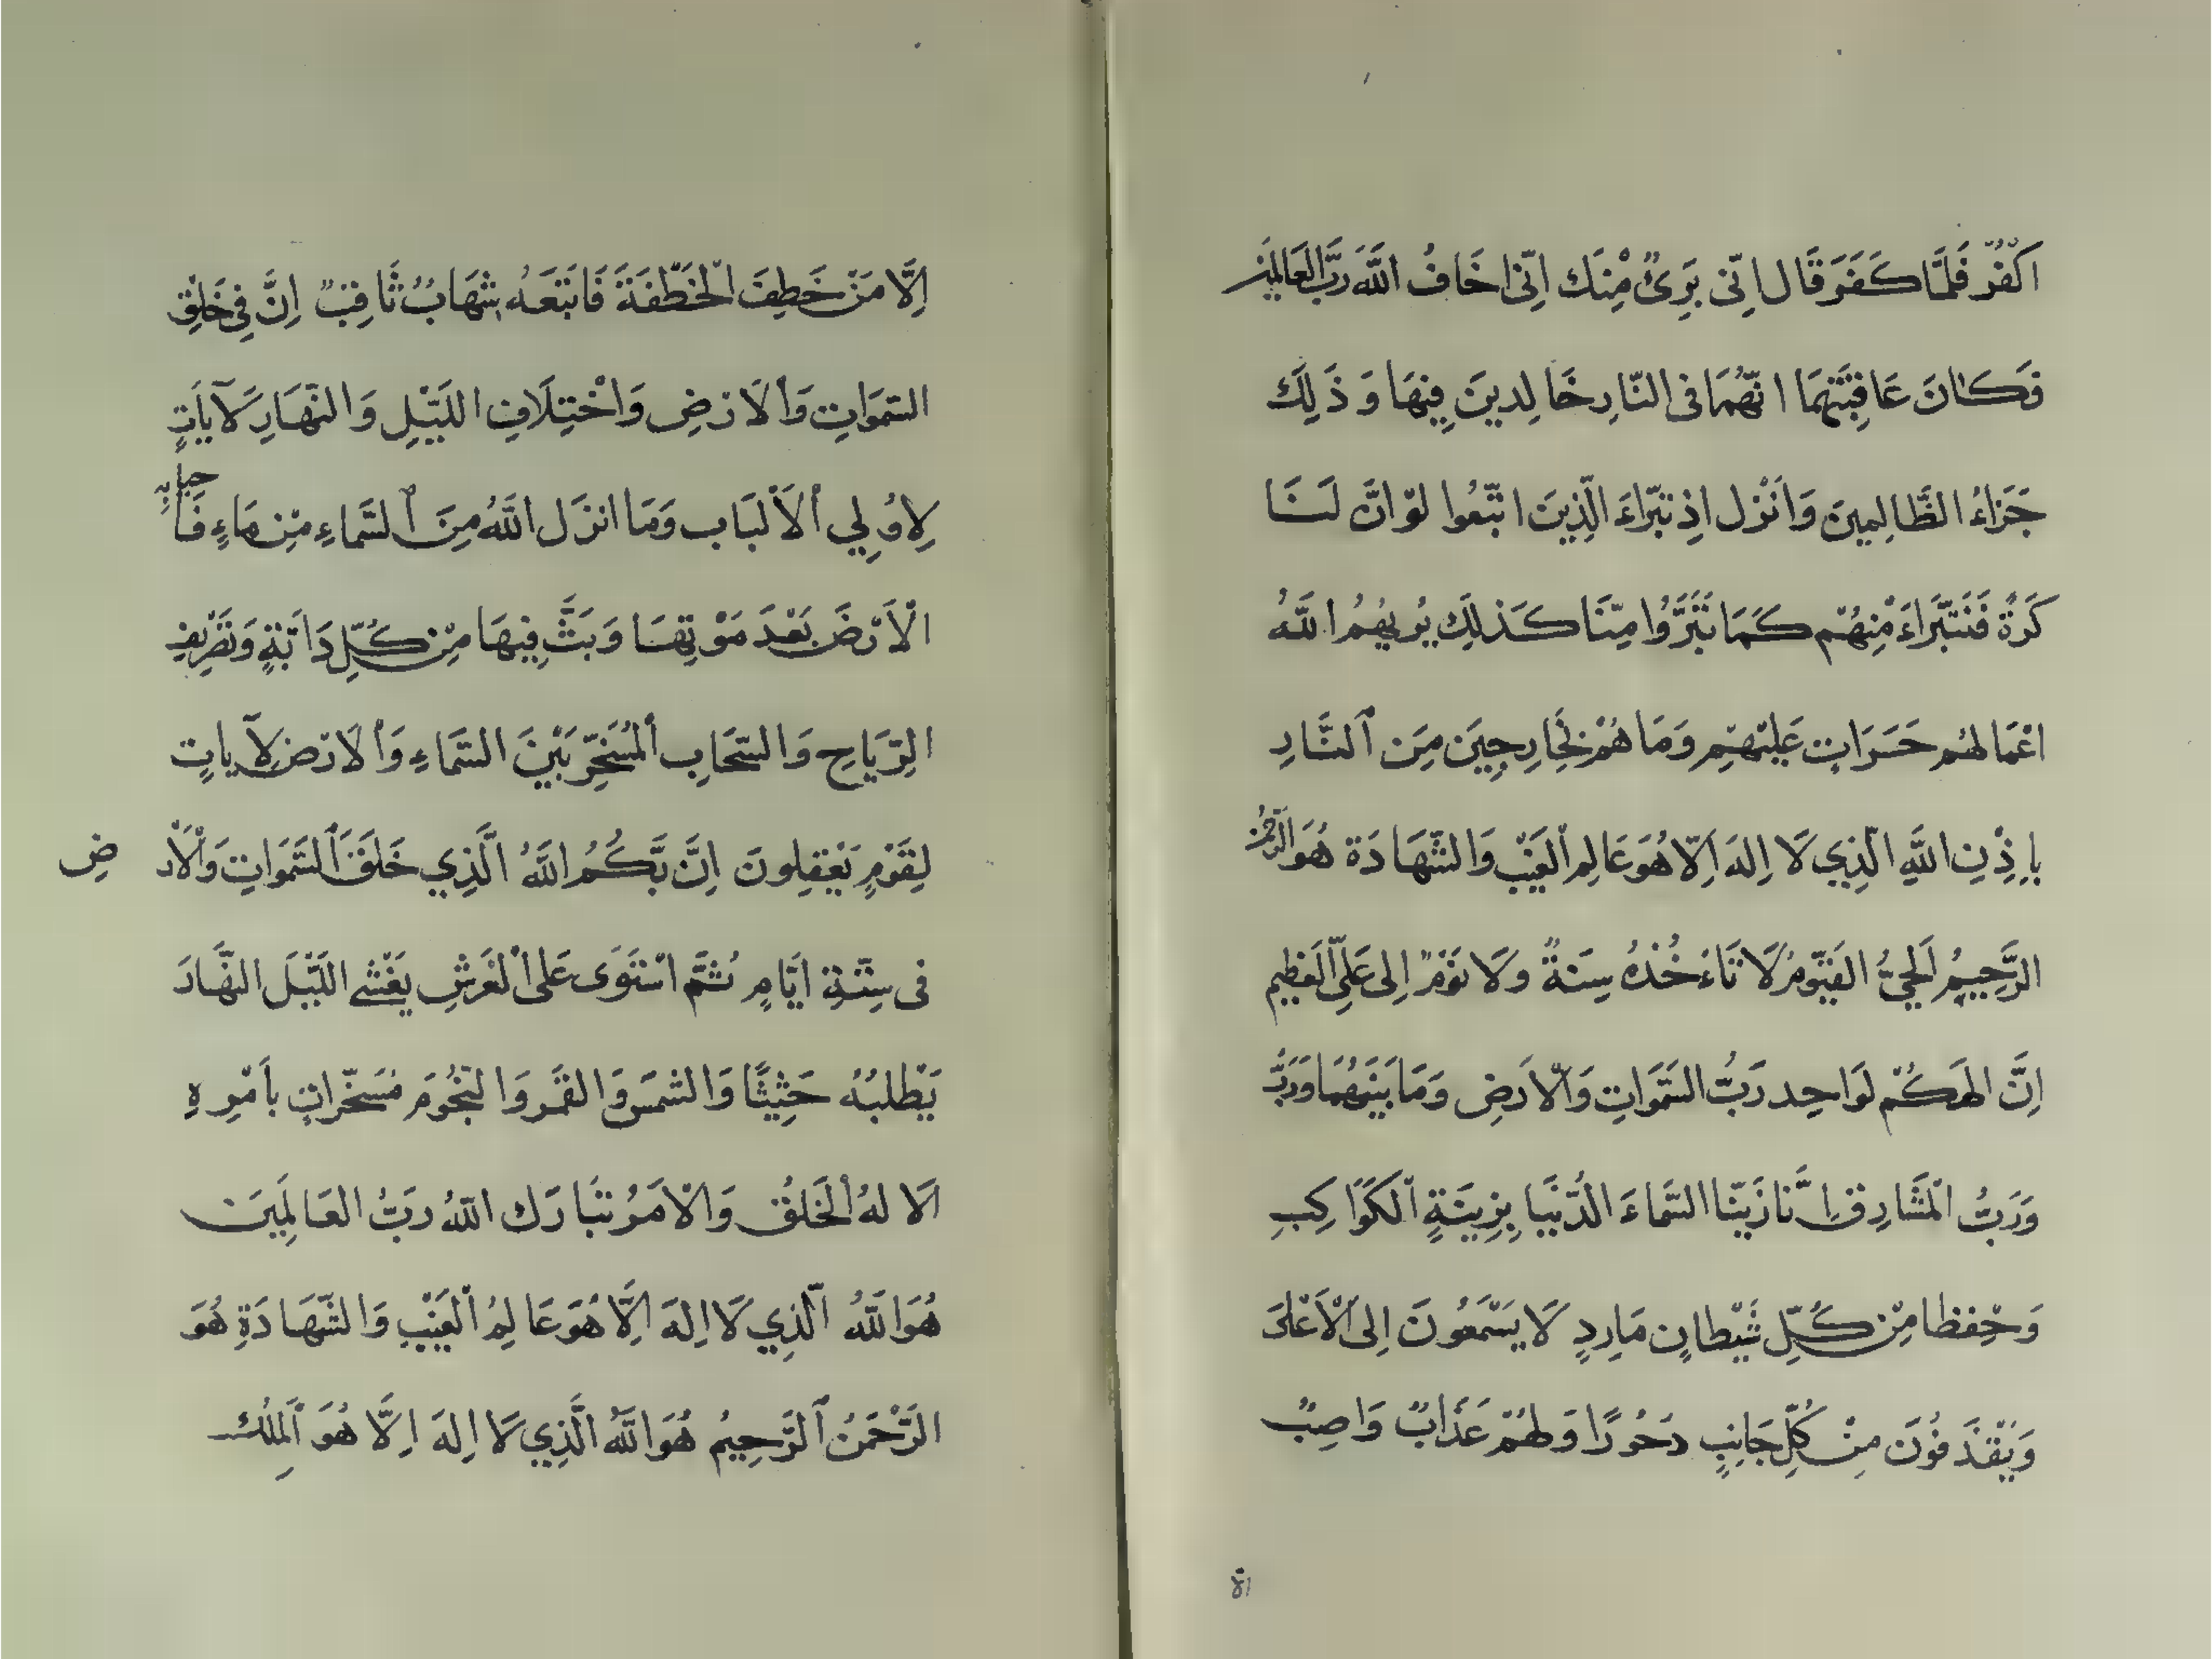 اكْفُرْ فَلَمَّا كَفَرَ قَال اِنّى بَرِىٌٔ مْنِنَك اِنّى اخَافُ اللَّهَ رَبَّ العَالَمِينَ
فَكَانَ عَاقِبَتَهُمَا انَّهُمَا فى النّارِ خَالِدينَ فِيهَا وَ ذَلِكَ
جَزَاءُ الظَّالِمِينَ وَاَنْزل اِذ تبَرّاءَ الَّذِينَ اتّبَعُوا لوْ انَّ لَنَا
كَرةً فَنَتَبّرَاءَ مْنِهُمْ كَمَا تَبَرَّوُا مِنّنَا كَذلِكَ يُرِيهُمُ اللَّهُ
اعْمَالهُم حَسَرَاتٍ عَليْهِم وَمَا هُمْ بِخَارِجِينَ مِنَ ٱلنَّارِ
بِاِذْنِ اللَّهِ الَّذِي لَا اِلهَ اِلّا هُوَ عَالِم اْلغَيْبِ وَالشَّهَادَة هُوَ الرَّحْمَنُ
الرَّحِيمُ اَلحَيُّ القَيّومُ لَا تَاءخُذُهُ سِنَةٌ ولَا نَوْمٌ اِلى عَلِىّ العَظِيم
اِنَّ الهَكُمْ لوَاحِد رَبُّ السَّمَوَاتِ وَالْاَرَضِ وَمَا بَيْنَهُمَا وَرَبُّ
وَرَبُّ اْلمَشَارِقِ اِنَّا زَيّنَا السَّمَاءَ الدُّنْيَا بِزِينَةٍ اْلكَوَاكِبِ
وَحْفِظا مِنْ كُلِّ شَيْطَانٍ مَارِدٍ لَا يَسْمَعُونَ اِلى الْاَعْلىَ
وَيُقْذَفُوُنَ مِنْ كُلِّ جَانِبٍ دحُورًا وَلهُمْ عَذَابٌ وَاصِبٌ
٨١
اِلَّا مَنْ خَطِفَ اْلخَطْفَةَ فَاتَبَعَهُ شِهَابٌ ثَاقِبٌ اِنَّ فِي خَلْقِ
السّمَوَاتِ وَاْلاَرْضِ وَاخْتِلَافِ اللَيْلِ وَالنّهَارِ لَآيَاتٍ
لِاوُلِي اْلاَلْبَاب وَمَا انزَل اللَّهُ مِنَ ٱلسَّمَاءِ مْنِ مَاءٍ فَاَحيا به
الْاَرْضَ بَعْدَ مَوْتِهَا وَبَثَّ فِيهَا مْنِ كُلِّ دَابّةٍ وَتَصْرِيفِ
الرِّيَاحِ وَالسّحَابِ اْلمُسَخّرِ بَيْنَ السّمَاءِ وَاْلاَرْض لَآياتٍ
لِقَوْمٍ يَعْقِلونَ اِنَّ رَبَّكُمُ اللَّهُ الَّذِي خَلَقَ ٱلسَّمَوَاتِ وَاْلاَرْضِ
فى سِتّةِ ايّامٍ ثُمَّ اسْتَوَى عَلى اْلعَرْشِ يَغْشى اللَيْلَ النَّهَارَ
يَطْلبُهُ حَثِيثًا وَالشَمسَ وَالقمَر وَالنّجُومَ مُسَخّرَاتٍ باَمْرِهِ
اَلَا لهُ اْلخَلقُ وَالْامَرُ تبَارَك اللّهُ رَبُّ العَالَمِينَ
هُوَ اللَّهُ الَّذِي لَا اِلهَ اِلَّا هُوَ عَالِمُ اْلغَيْبِ وَالشَّهَادَةِ هُوَ
الرَّحْمَنُ ٱلرَّحِيمُ هُوَ اللَّهُ الَّذِي لَا اِلهَ اِلَّا هُوَ اَلمَلِكُ